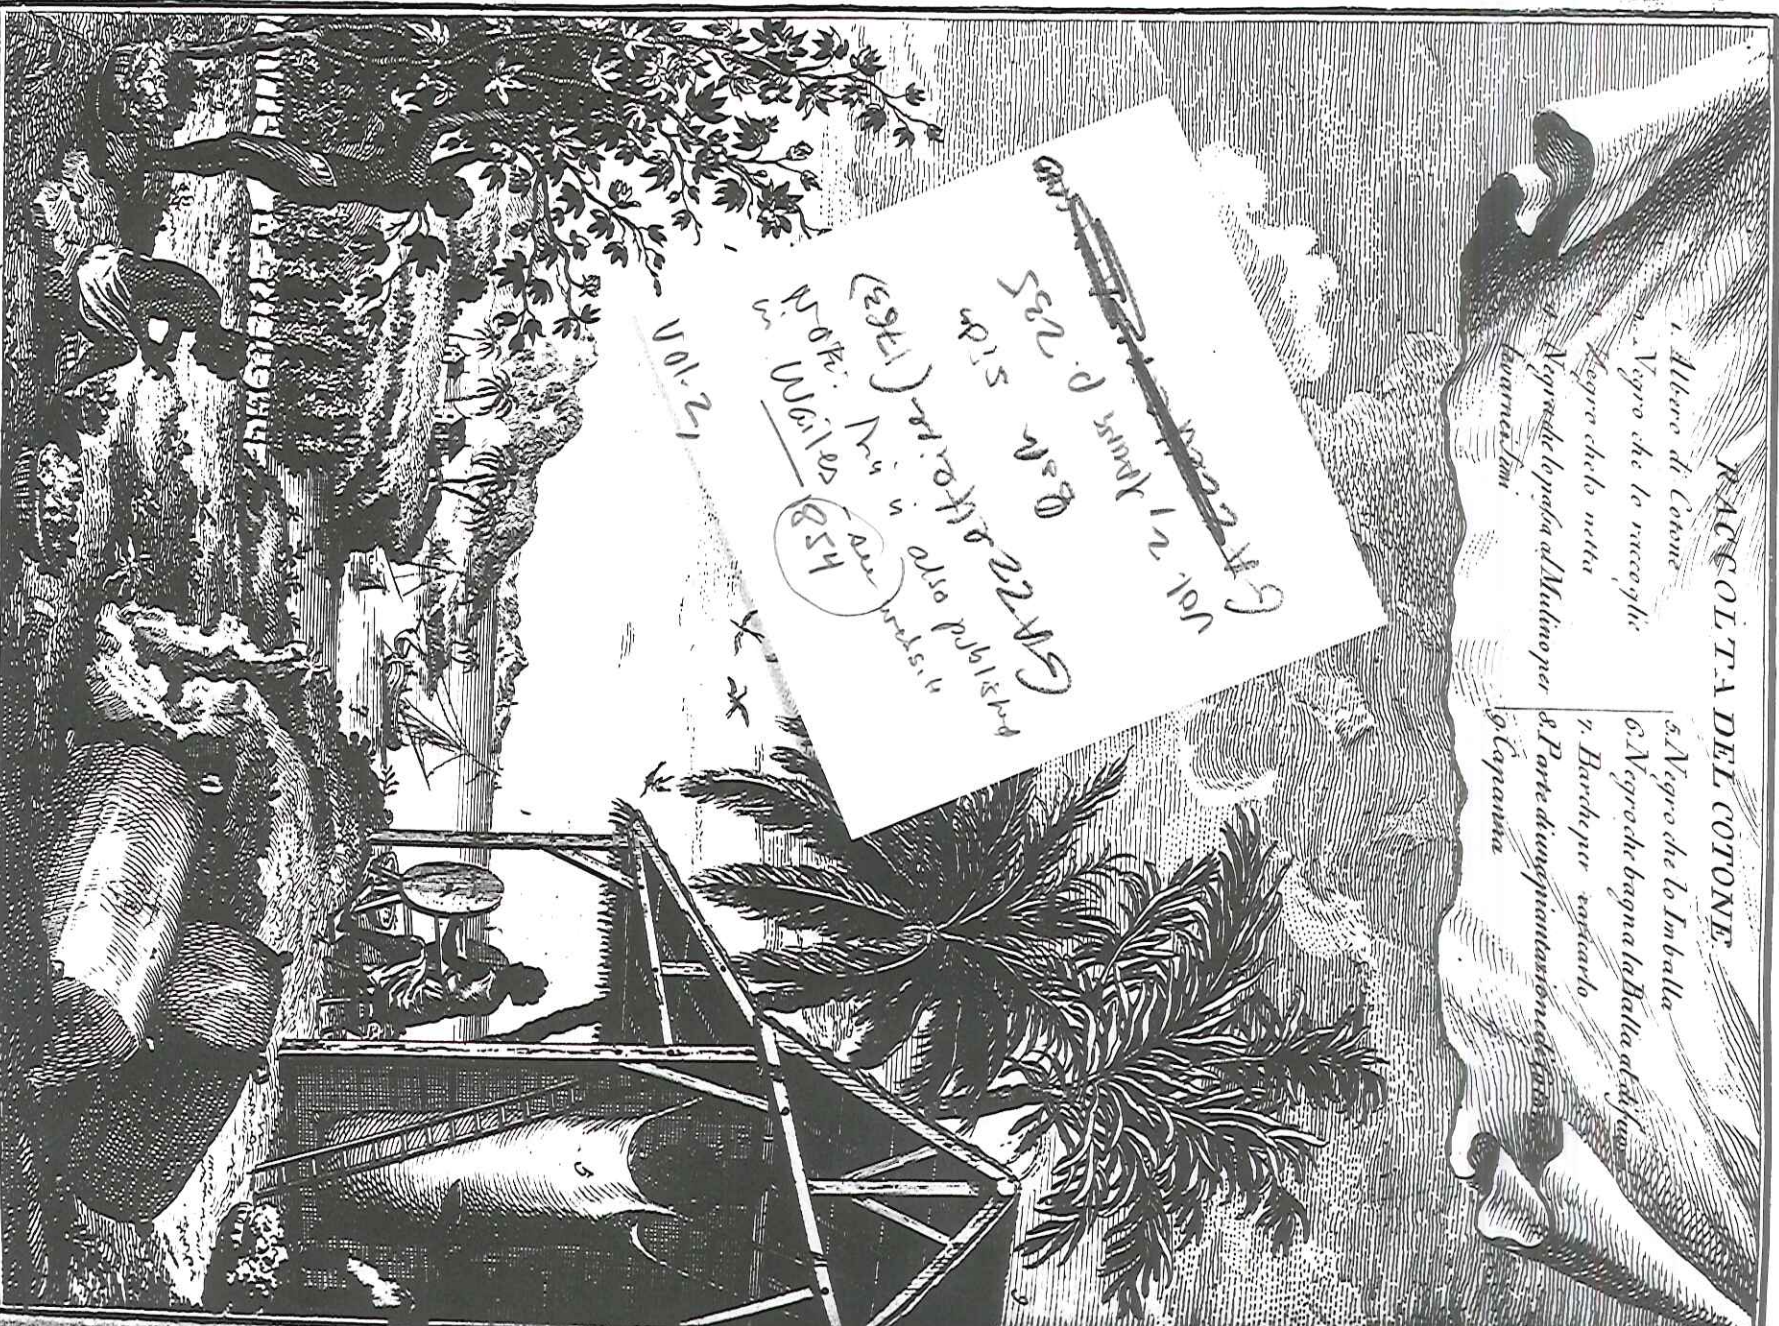 RACCOLTA DEL COTONE
Albero di Cotone
Negro che lo raccoglie
Negro che lo netta
Negro che lo passa al Mulino per
lavarne i semi
5. Negro che lo Imballa
6. Negro che bagna la Balla al di fuori
7. Barche per caricarlo
8. Parte di una piantazione di
9. Capanna
Vol. 2, faces p. 235
GAZZettiere (1763)
Note: this is also published
in Wailes 1854
Vol. 2,
G